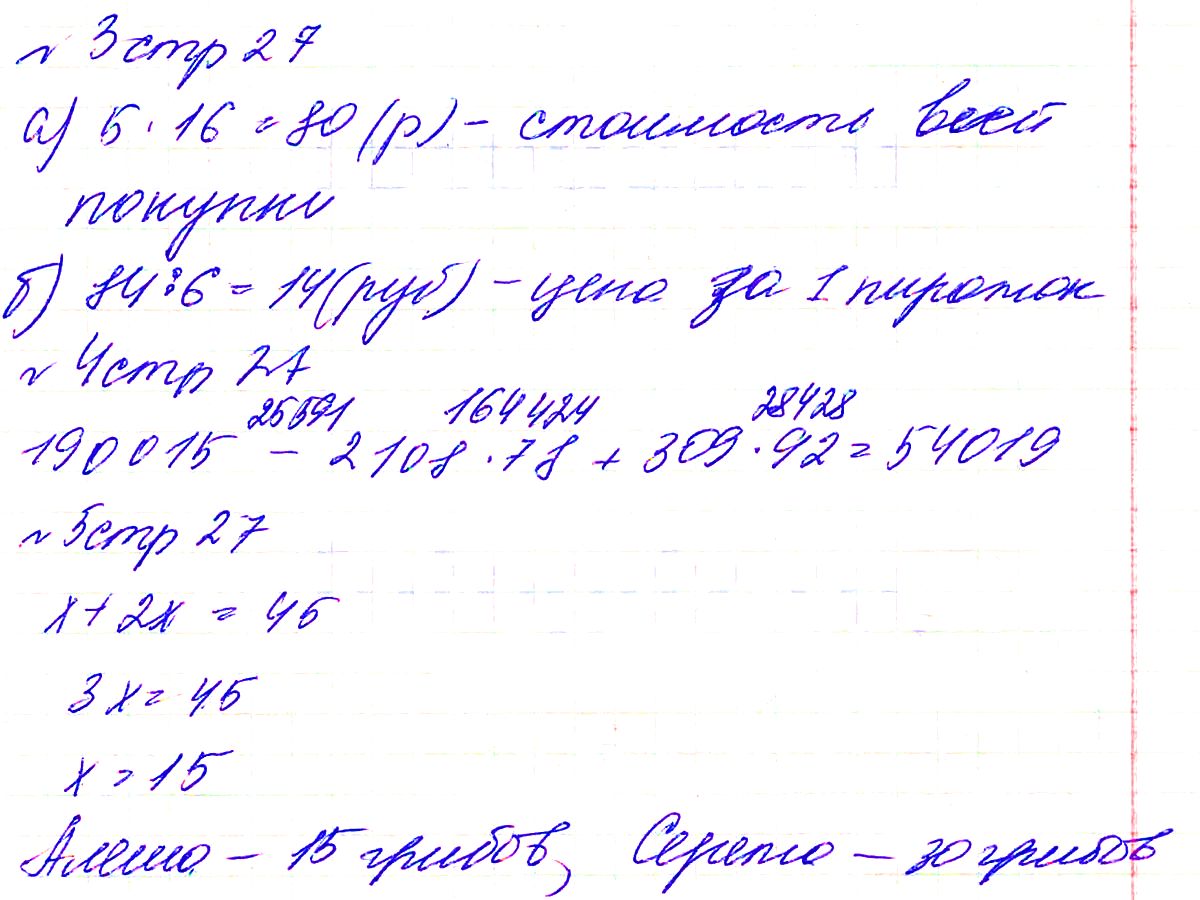 № 3 стр 27
а) 5 · 16 = 80 (р) – стоимость всей
покупки
б) 84 : 6 = 14 (руб) – цена за 1 пирожок
№ 4 стр 27
25591 164424 28428
190015 – 2108 · 78 + 309 · 92 = 54019
№ 5 стр 27
х + 2х = 45
3х = 45
х = 15
Алеша – 15 грибов, Сережа – 30 грибов